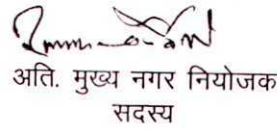 अति. मुख्य नगर नियोजक
सदस्य